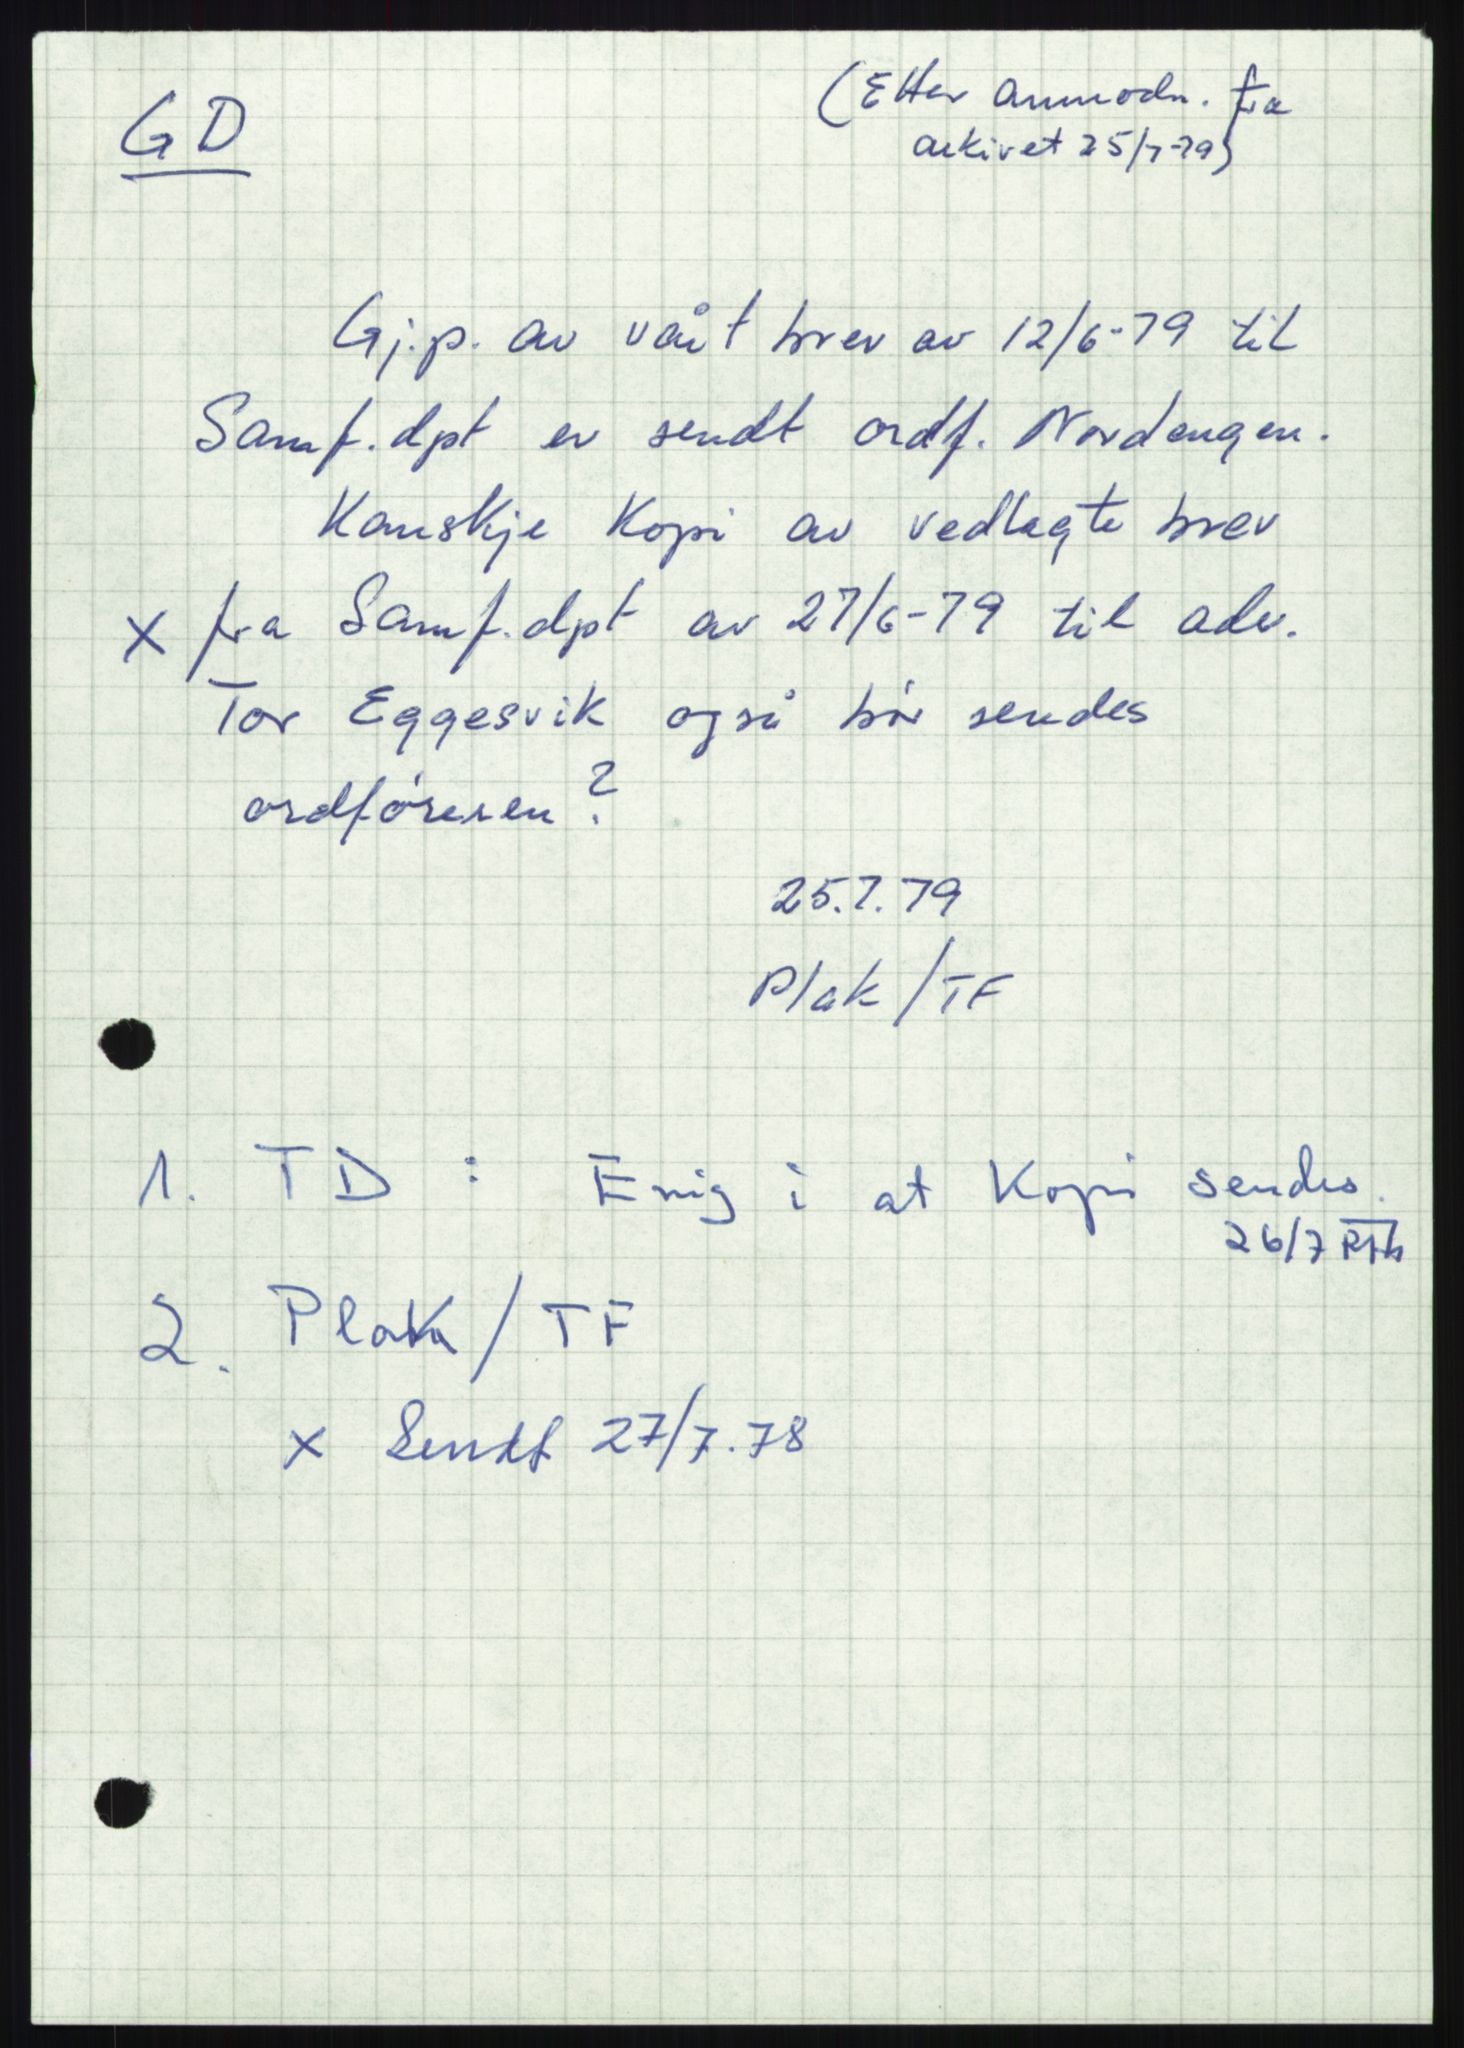 GD
(Etter anmodn. fra
arkivet 25/7-79)
Gj.p. av vårt brev av 12/6-79 til
Samf.dpt er sendt ordf. Nordengen.
Kanskje kopi av vedlagte brev
x fra Samf.dpt av 27/6-79 til adv.
Tor Eggesvik også bør sendes
ordføreren?
25.7.79
Plak/TF
1. TD : Enig i at kopi sendes.
26/7
2. Plak/TF
x Sendt 27/7.78